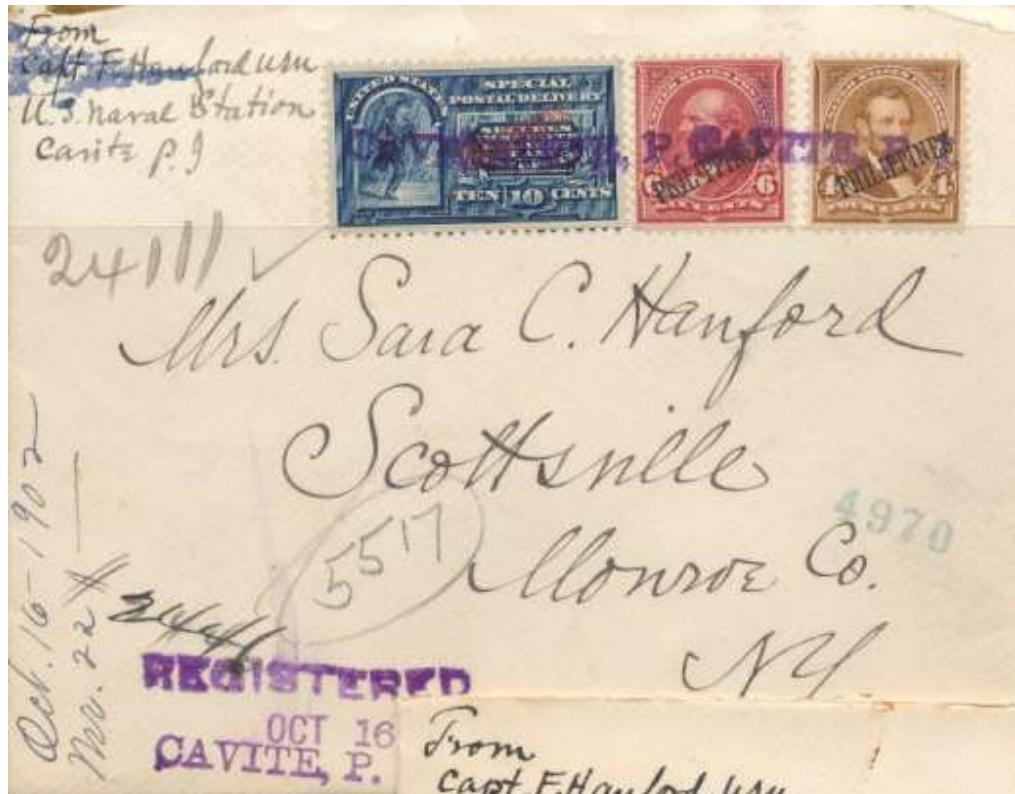 From
Capt. F. Hanford USN
U.S. Naval Station
Cavite P.I
UNITED STATES
SPECIAL
POSTAL DELIVERY
TEN 10 CENTS
PHILIPPINES
6
PHILIPPINES
4
24111
Mrs. Sara C. Hanford
Scottsville
Monroe Co.
NY
4970
5517
Oct. 16-1902
No. 22
REGISTERED
OCT 16
CAVITE, P.
From
Capt. F. Hanford USN